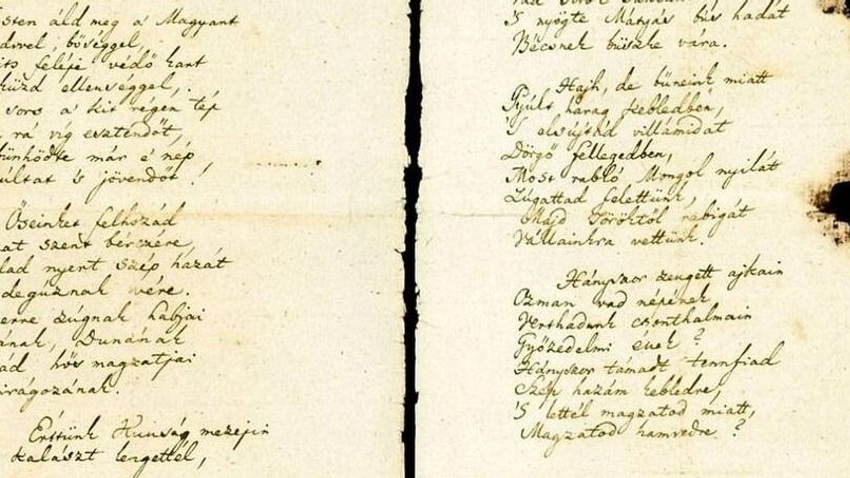 sten áld meg a' Magyart
bőséggel,
felépe védő kart
küzd ellenséggel,
sors a' kit régen tép
rá víg esztendőt,
bűnhödte már é nép
múltat 's jövendőt!
Őseinket felhozád
szent bérczére,
nyert szép hazát
degúznak vére.
erre zúgnak habjai
Dunának
hős magzatjai
virágozának.
Értünk Kunság mezejin
kalászt lengettél,
'S nyögte Mátyás bús hadát
Bécsnek büszke vára.
Hajh, de bűneink miatt
Gyúlt harag kebledben,
'S elsújtád villámidat
Dörgő fellegedben,
Most rabló Mongol nyilát
Zúgattad felettünk,
Majd Töröktől rabigát
Vállainkra vettünk.
Hányszor zengett ajkain
Ozman vad népének
Vert hadunk csonthalmain
Győzedelmi ének?
Hányszor támadt tennfiad
Szép hazám kebledre,
'S lettél magzatod miatt,
Magzatod hamvedre?